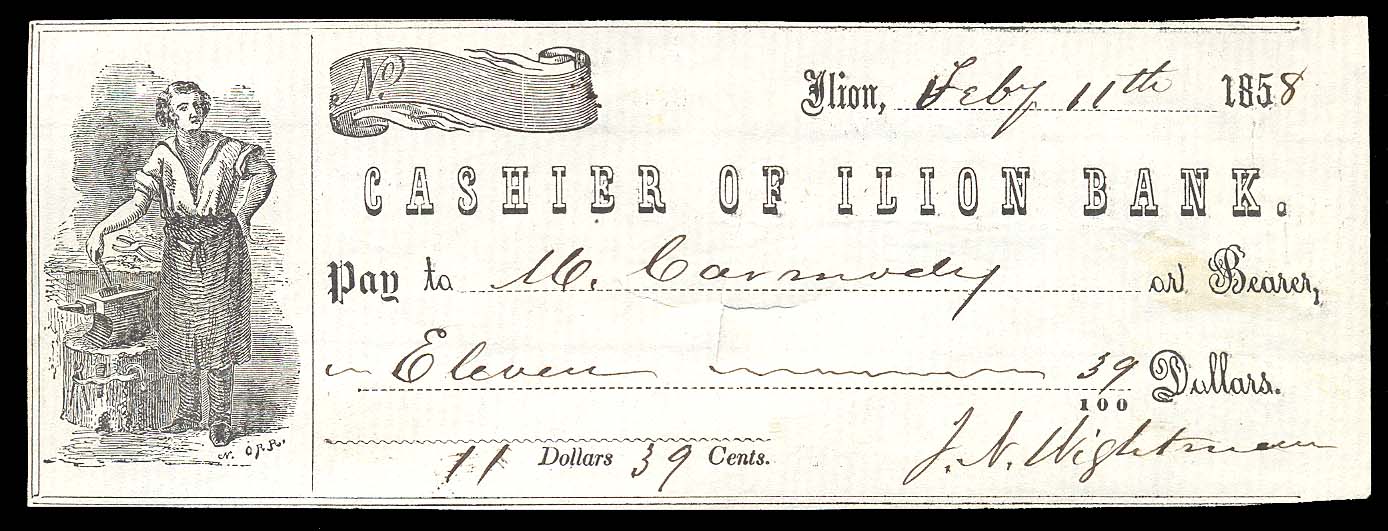 No.
Ilion, Feby 11th 1858
CASHIER OF ILION BANK.
Pay to M. Carmody or Bearer,
Eleven 39/100 Dollars.
11 Dollars 39 Cents.
J. N. Wightman
N. ORR.